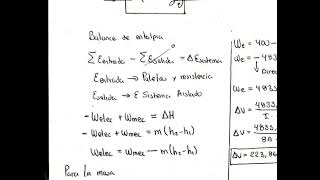 Balance de entalpia
ΣEentrada − ΣEsalida = ΔEsistema
Eentrada → Paletas y resistencia
Esalida → E Sistema Aislado
-Welec + Wmec = ΔH
-Welec + Wmec = m(h2-h1)
Welec = Wmec − m(h2-h1)
Para la masa
We = 400 -
We = -483
Direc
We = 4833
ΔV = 4833,
I.
ΔV = 4833,
8A
ΔV = 223,86